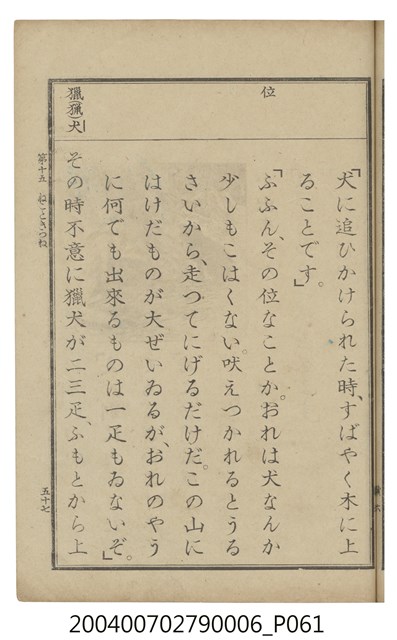 位
獵(猟)犬
「犬に追ひかけられた時、すばやく木に上
ることです。」
「ふふん、その位なことか。おれは犬なんか
少しもこはくない。吠えつかれるとうる
さいから、走つてにげるだけだ。この山に
はけだものが大ぜいゐるが、おれのやう
に何でも出來るものは一疋もゐないぞ。」
その時不意に獵犬が二三疋、ふもとから上
第十五 ねこときつね
五十七
200400702790006_P061